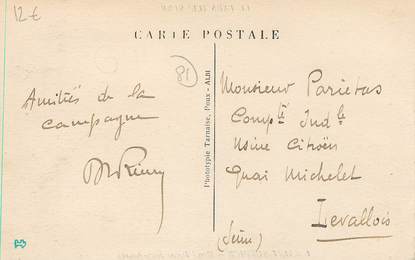 12€
CARTE POSTALE
81
Amitiés de la
campagne
Phototypie Tarnaise, Poux - ALBI
Monsieur Parietas
Compté Indle
Usine Citroën
Quai Michelet
Levallois
(Seine)